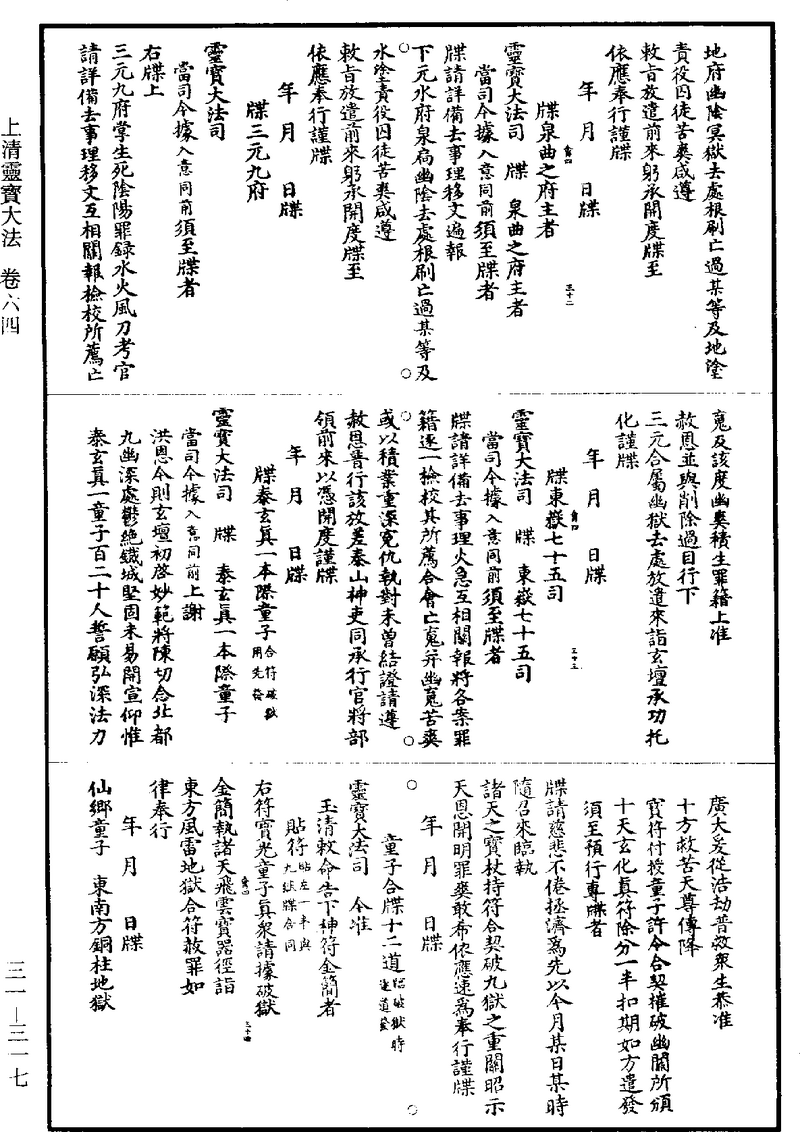 上清靈寶大法　卷六四
地府幽陰冥獄去處根刷亡過某等及地塗
責役囚徒苦爽咸遵
敕旨放遣前來躬承開度牒至
依應奉行謹牒
年　月　日牒
牒泉曲之府主者
靈寶大法司　牒　泉曲之府主者
當司今據入意同前須至牒者
牒請詳備去事理移文遍報
下元水府泉扃幽陰去處根刷亡過某等及
水塗責役囚徒苦爽咸遵
敕旨放遣前來躬承開度牒至
依應奉行謹牒
年　月　日牒
牒三元九府
靈寶大法司
當司今據入意同前須至牒者
右牒上
三元九府掌生死陰陽罪録水火風刀考官
請詳備去事理移文互相關報檢校所薦亡
䰟及該度幽爽積生罪籍上准
赦恩並與削除過目行下
三元合屬幽獄去處放遣來詣玄壇承功托
化謹牒
年　月　日牒
牒東嶽七十五司
靈寶大法司　牒　東嶽七十五司
當司今據入意同前須至牒者
牒請詳備去事理火急互相關報將各案罪
籍逐一檢校其所薦合會亡䰟并幽䰟苦爽
或以積業重深冤仇執對未曾結證請遵
赦恩普行該放差泰山神吏同承行官將部
領前來以憑開度謹牒
年　月　日牒
牒泰玄真一本際童子合符破獄用先發
靈寶大法司　牒　泰玄真一本際童子
當司今據入意同前上謝
洪恩今則玄壇初啓妙範將陳切念北都
九幽深處鬱絶鐵城堅固未易開宣仰惟
泰玄真一童子百二十人誓願弘深法力
廣大爰從浩劫普救衆生恭准
十方救苦天尊傳降
寶符付授童子許令合契摧破幽關所頒
十天玄化真符除分一半扣期如方遣發
須至預行專牒者
牒請慈悲不倦拯濟爲先以今月某日某時
隨召來臨執
諸天之寶杖持符合契破九獄之重關昭示
天恩開明罪爽敢希依應速爲奉行謹牒
年　月　日牒
童子合牒十二道臨破獄時逐道發
靈寶大法司　今准
玉清敕命告下神符金簡者
貼符貼左一半與九獄牒合同
右符寶光童子真衆請據破獄
金簡執諸天飛雲寶器徑詣
東方風雷地獄合符赦罪如
律奉行
年　月　日牒
仙鄉童子　東南方銅柱地獄
三一—三一七